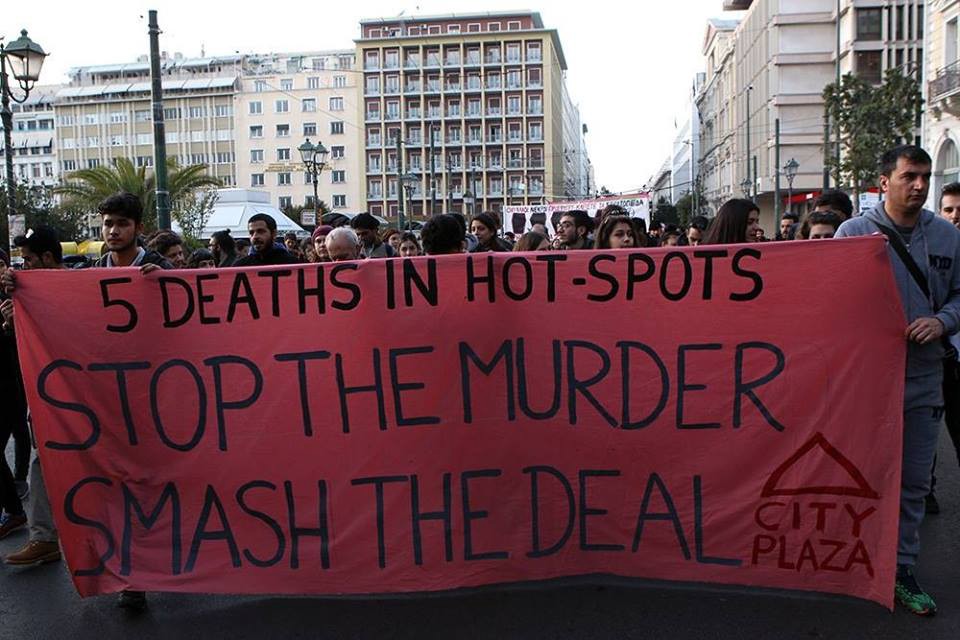 5 DEATHS IN HOT-SPOTS
STOP THE MURDER
SMASH THE DEAL
CITY
PLAZA